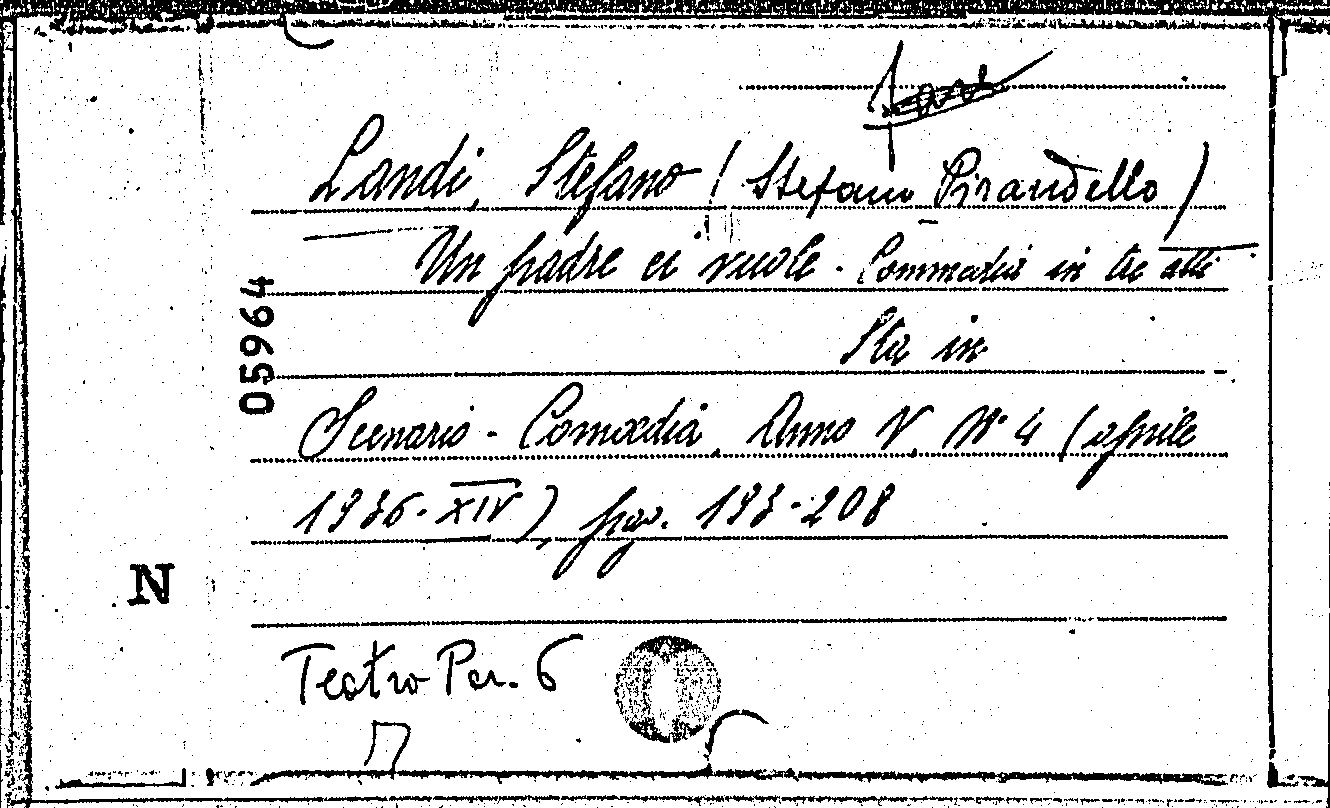 Landi, Stefano (Stefano Pirandello)
Un padre ci vuole. Commedia in tre atti.
Sta in
05964
Scenario - Comœdia, Anno V, N° 4 (aprile
1936-XIV), pag. 193-208
N
Teatro Per. 6